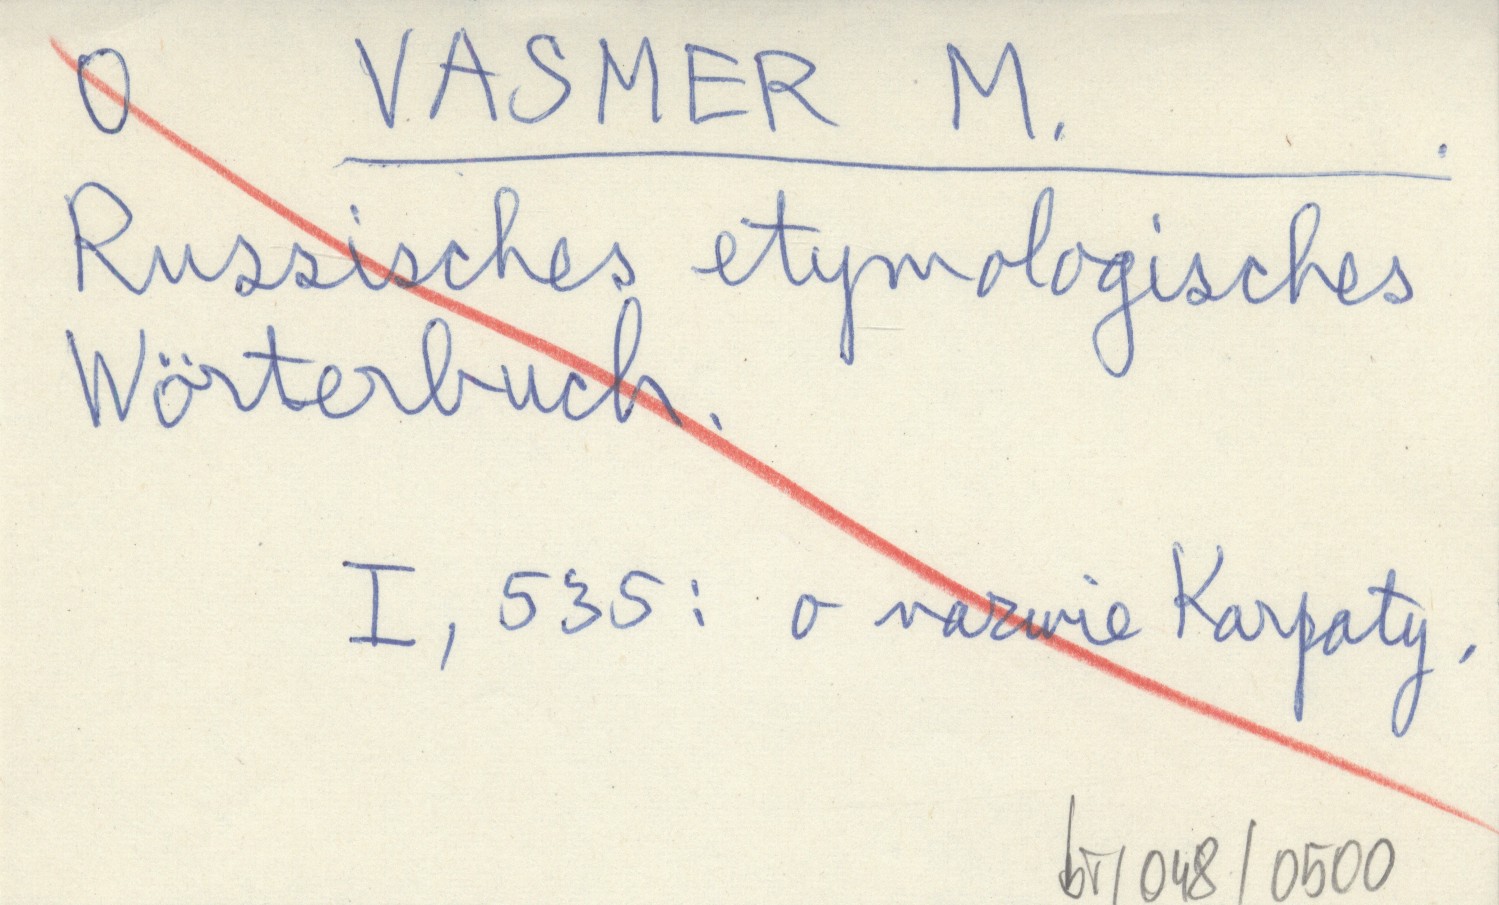 O VASMER M.
Russisches etymologisches
Wörterbuch.
I, 535: o nazwie Karpaty.
br/048/0500